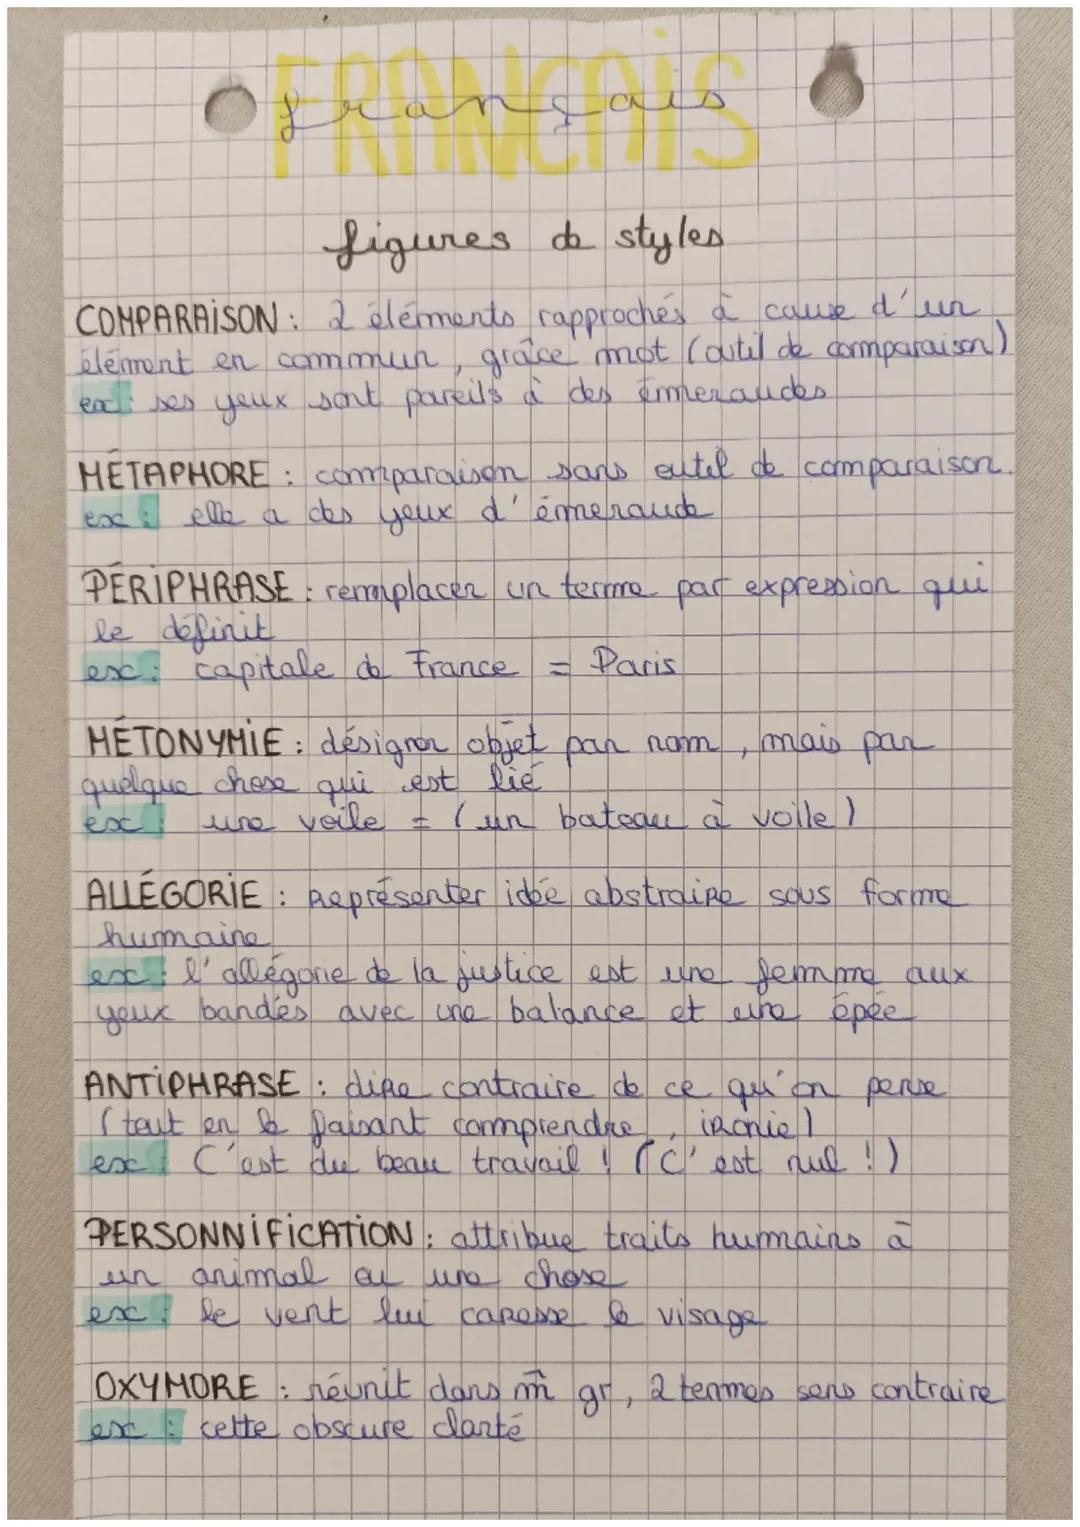 FRANCAIS
français
figures de styles
COMPARAISON : 2 éléments rapprochés à cause d'un
élément en commun, grâce mot (outil de comparaison)
ex : ses yeux sont pareils à des émeraudes
MÉTAPHORE : comparaison sans outil de comparaison.
ex : elle a des yeux d'émeraude
PÉRIPHRASE : remplacer un terme par expression qui
le définit
ex : capitale de France = Paris
MÉTONYMIE : désigner objet par nom, mais par
quelque chose qui est lié
ex : une voile = (un bateau à voile)
ALLÉGORIE : Représenter idée abstraire sous forme
humaine
ex : l'allégorie de la justice est une femme aux
yeux bandés avec une balance et une épée
ANTIPHRASE : dire contraire de ce qu'on pense
(tout en le faisant comprendre, ironie)
ex : C'est du beau travail ! (C'est nul !)
PERSONNIFICATION : attribue traits humains à
un animal ou une chose
ex : le vent lui caresse le visage
OXYMORE : réunit dans m̂ gr, 2 termes sens contraire
ex : cette obscure clarté